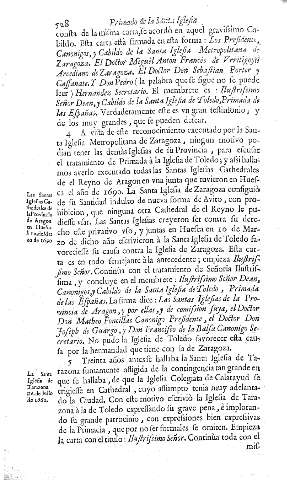 528 Primado de la Santa Iglesia
consta de la misma carta, se acordó en aquel gravissimo Ca-
bildo. Esta carta está firmada en esta forma: Los Presidente,
Canonigos, y Cabildo de la Santa Iglesia Metropolitana de
Zaragoza. El Doctor Miguel Anton Francès de
Arcediano de Zaragoza. El Doctor Don Sebastian Porter y
Cassanate. Y Don Pedro (la palabra que se sigue no se puede
leer) Hernandez Secretario. El membrete es: Ilustrissimo
Señor Dean, y Cabildo de la Santa Iglesia de Toledo, Primada de
las Españas. Verdaderamente este es vn gran testimonio, y
de los muy grandes, que se pueden desear.
4 A vista de este reconocimiento executado por la San-
ta Iglesia Metropolitana de Zaragoza, ningun motivo po-
dian tener las demàs Iglesias de su Provincia, para escusar
el tratamiento de Primada à la Iglesia de Toledo; y assi halla-
mos averlo executado todas las Santas Iglesias Cathedrales
de el Reyno de Aragon en vna junta que tuvieron en Hues-
ca el año de 1690. La Santa Iglesia de Zaragoza consiguiò
de su Santidad indulto de nueva forma de Avito, con pro-
hibicion, que ninguna otra Cathedral de el Reyno le pu-
diesse vsar. Las Santas Iglesias creyeron ser contra su dere-
cho este privativo vso, y juntas en Huesca en 10 de Mar-
zo de dicho año escrivieron à la Santa Iglesia de Toledo fa-
voreciesse su causa contra la Iglesia de Zaragoza. Esta car-
ta es en todo semejante à la antecedente; empieza Ilustris-
simo Señor. Continúa con el tratamiento de Señoria Ilustris-
sima, y concluye en el membrete: Ilustrissimo Señor Dean,
Canonigos, y Cabildo de la Santa Iglesia de Toledo, Primada
de las Españas. La firma dice: Las Santas Iglesias de la Pro-
vincia de Aragon, y por ellas, y de comission suya, el Doctor
Don Matheo Foncillas Canonigo Presidente, el Doctor Don
Joseph de Guargo, y Don Francisco de la Balsa Canonigo Se-
cretario. No pudo la Iglesia de Toledo favorecer esta cau-
sa por la hermandad que tiene con la de Zaragoza.
5 Treinta años antes se hallaba la Santa Iglesia de Ta-
razona sumamente afligida de la contingencia tan grande en
que se hallaba, de que la Iglesia Colegiata de Calatayud se
erigiesse en Cathedral, cuyo assumpto tenia muy adelanta-
do la Ciudad. Con este motivo escriviò la Iglesia de Tara-
zona à la de Toledo expressando su grave pena, è imploran-
do su grande patrocinio, con expressiones bien expressivas
de la Primacia, que por no ser factnales se omiten. Empieza
la carta con el titulo: Ilustrissimo Señor. Continúa toda con el
mis-
Las Santas
Iglesias Ca-
thedrales de
la Provincia
de Aragon
en Huesca
à 10 de Mar-
zo de 1690
La Santa
Iglesia de
Tarazona
de Julio
de 1660.